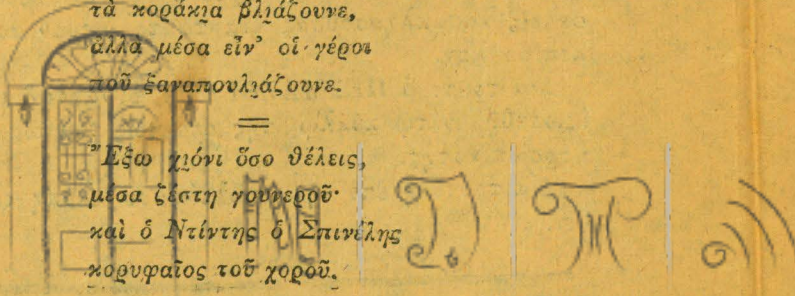 τὰ κοράκι̯α βλι̯άζουνε,
ἀλλὰ μέσα εἶν' οἱ γέροι
ποῦ ξαναπουλι̯άζουνε.
Ἔξω χι̯όνι ὅσο θέλεις,
μέσα ζέστη γουνεροῦ·
καὶ ὁ Ντίντης ὁ Σπινέλης
κορυφαῖος τοῦ χοροῦ.